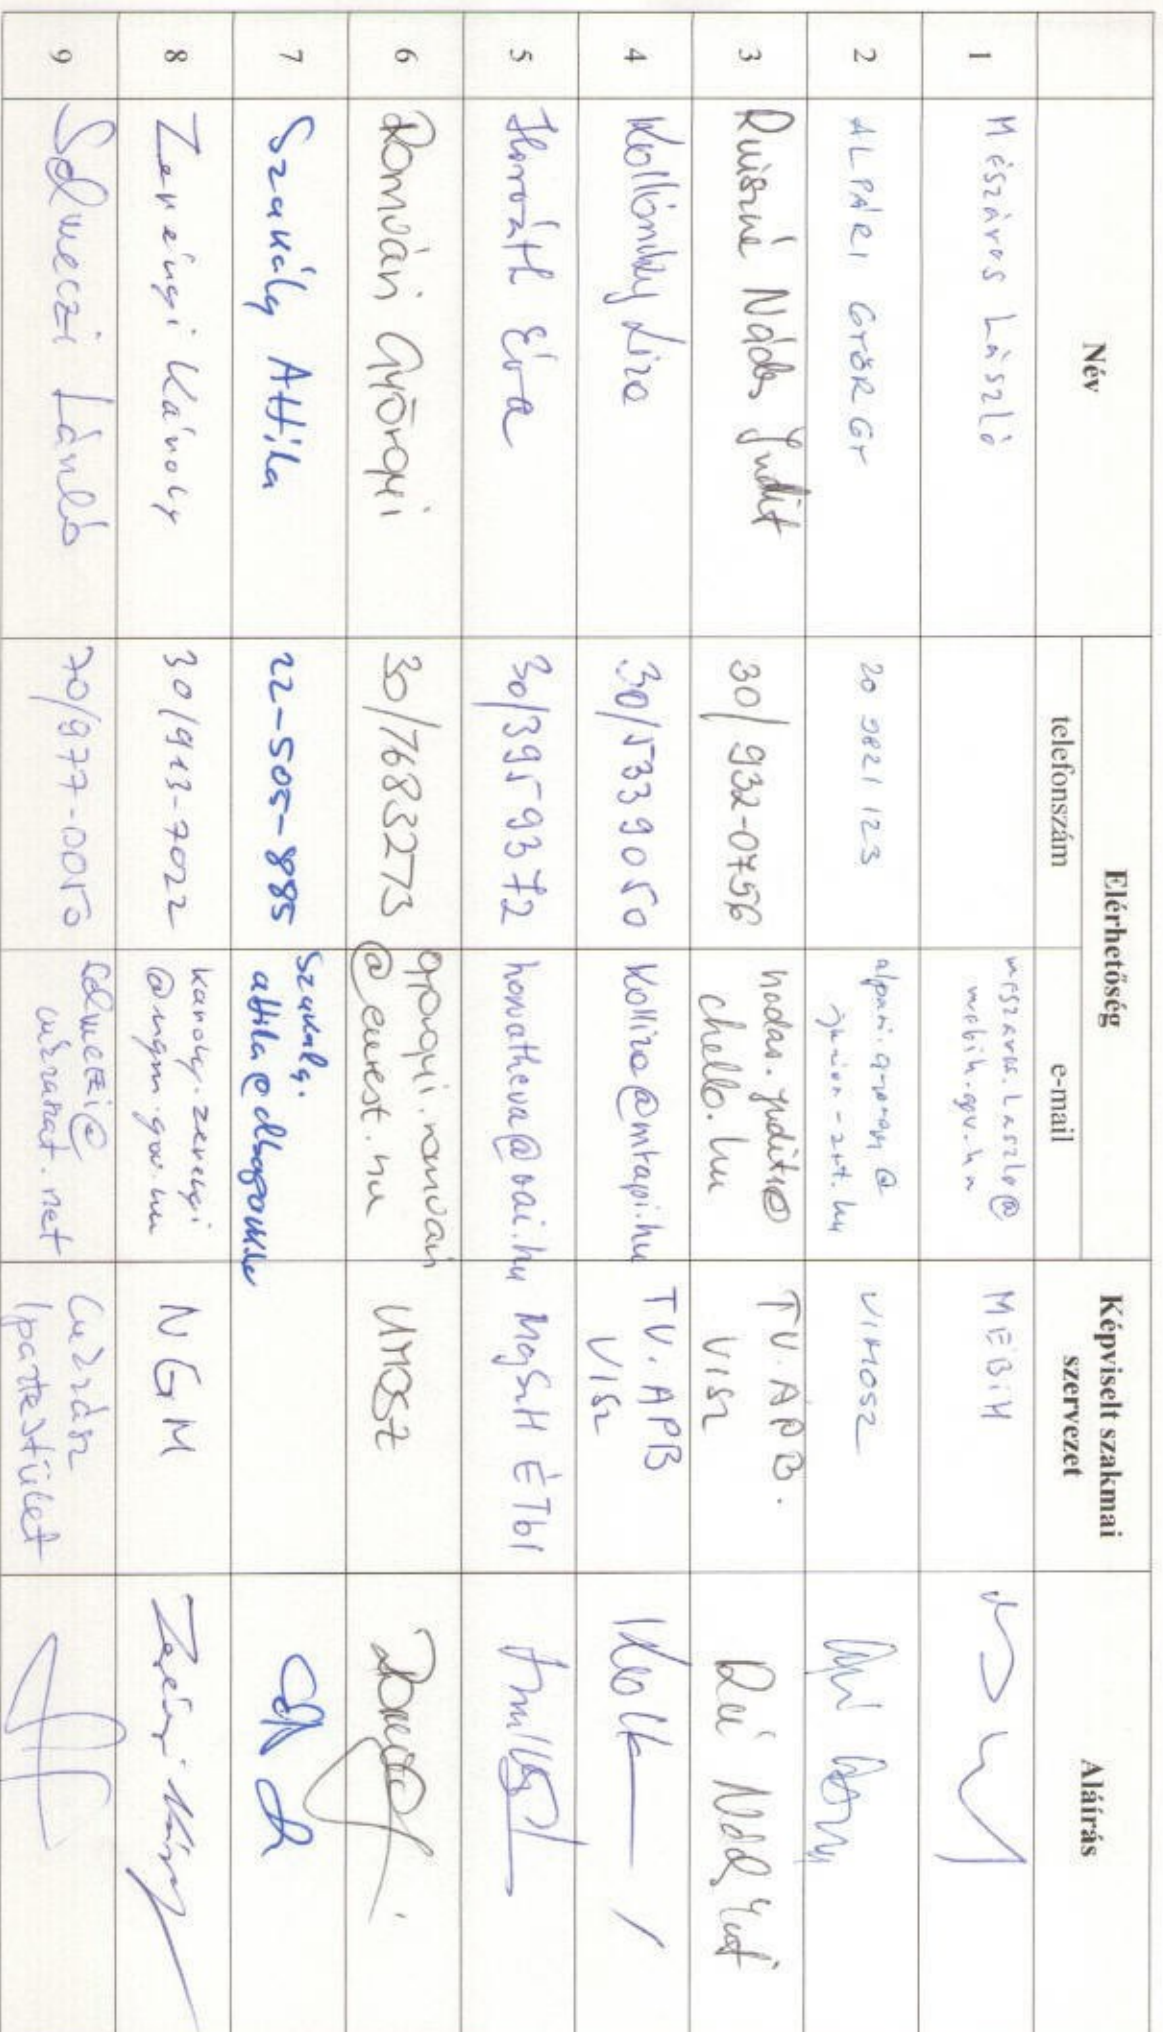 Név
Elérhetőség
Képviselt szakmai
szervezet
Aláírás
telefonszám
e-mail
1
Mészáros László
meszaros.laszlo@
mebih.gov.hu
MEBIH
2
ALPÁRI GYÖRGY
20 9821 123
alpari.gyorgy@
junior-zrt.hu
VIMOSZ
3
Ruiszné Nádas Judit
30/932-0756
nadas.judit@
chello.hu
TV. ÁPB.
VISZ
4
Liza
30/5339050
Kolliza@mtapi.hu
TV. APB
VISZ
5
Horváth Éva
30/3959372
horvatheva@oai.hu
MgSzH ÉTbI
6
Romvári Györgyi
30/7683273
gyorgyi.romvari
@eurest.hu
UMOSZ
7
Szakály Attila
22-505-885
Szakaly.
8
Zerényi Károly
30/913-7022
karoly.zerenyi
@ngm.gov.hu
NGM
Zerényi Károly
9
Selmeczi László
70/977-0050
selmeczi@
cukraszat.net
Cukrász
Ipartestület